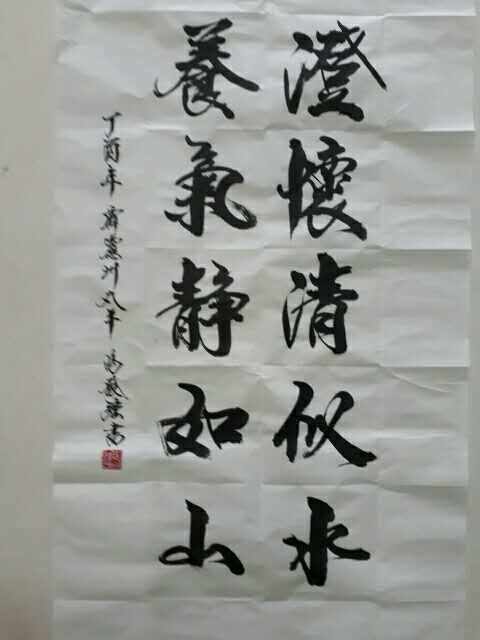 澄懷清似水
養氣靜如山
丁酉年
書